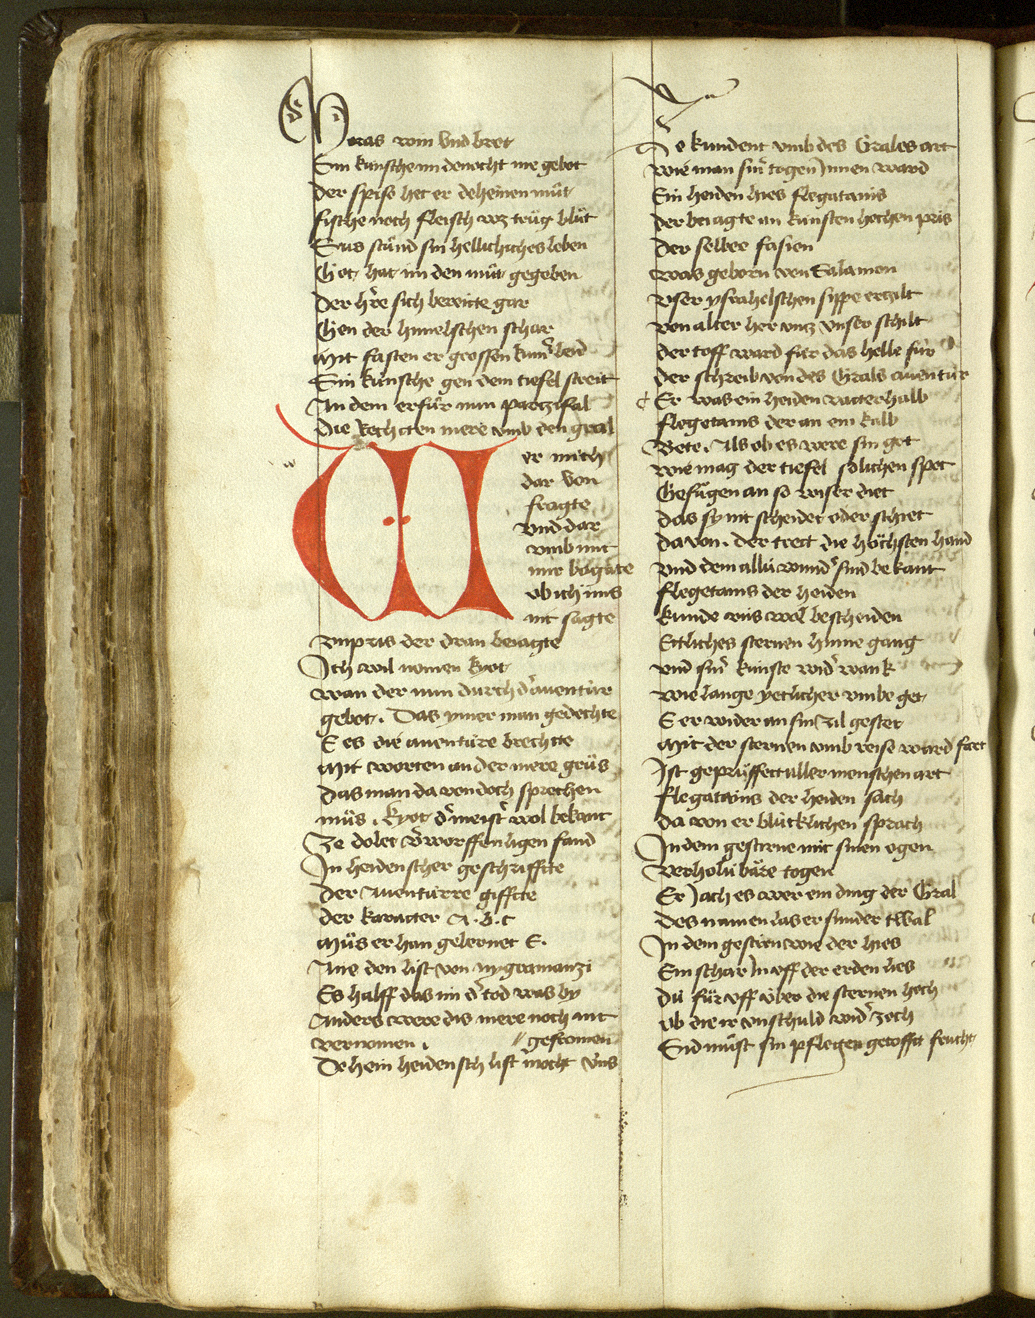 Moras win vnd bret
Sin kúnsche im denocht nie gebot
Der spise het er deheinen můt
fische noch fleisch wz trůg blůt
Sus stůnd sin hellichliches leben
Got hat im den můt gegeben
Der h're sich bereitte gar
Gen der himelschen schar
Mit fasten er grossen kumb' leid
Sin kúnsche gen dem tiefel streit
An dem erfůr nun parzifal
Die Rechtten mere vmb den gral
Wer mich
dar von
fragte
vnd dar
vmb mit
mir bagete
ob ich ims
nit sagte
vnpris der dran beiagte
Ich wil nemen kyot
wan der nun durch d' auentúr
gebot . Das ymer man gedechte
E es die auentúre brechte
Mit worten an der mere grůs
Das man da von doch sprechen
můs . kyot d' meist' wol bekant
Ze dolet v'worffen ligen fand
In heidenscher geschriffte
Der Auentúrre giffte
der karacter A . B . C
Můs er han gelernet E .
Ane den list von nygramanzi
Es halff das im d' tod was by
Anders were dis mere noch nit
vernomen . // gefromen
Dehein heidensch list mocht vns
Ze kúndent vmb des Grales art
wie man sin' togen Innen ward
Ein heiden hies flegatanis
der beiagte an kúnsten hochen pris
Der selbe fision
was geborn von Salamon
vser ysrahelschen sippe erzilt
von alter her vntz vnser schilt
der toff ward fúr das helle fúr
der schreib von des Grals auentúr
Er was ein heiden vatterhalb
flegetanis der an ein kalb
Bete . Als ob es were sin got
wie mag der tiefel solichen spot
Gefůgen an so wiser diet
das sy nit scheidet oder schiet
da von . der treit die höchsten hand
vnd dem allú wund' sind bekant
flegetanis der heiden
kunde vns wol bescheiden
Ettliches sternen hinne gang
vnd sin' kúnste wid' wank
wie lange yetlicher vmbe get
E er wider an sin zil gestet
Mit der sternen vmb reise ward fart
Ist geprúffett aller menschen art
flegatanis der heiden sach
da von er blúcklichen sprach
In dem gestirne mit sinen ogen
verholn bäre togen
Er Jach es wer ein ding der Gral
des namen las er sunder twal
In dem gestirn wie der hies
Ein schar In vff der erden lies
Dú fúr vff v́ber die sternen hoch
ob die ir vnschuld wid' zoch
Sid můst sin pflegen getofft frucht